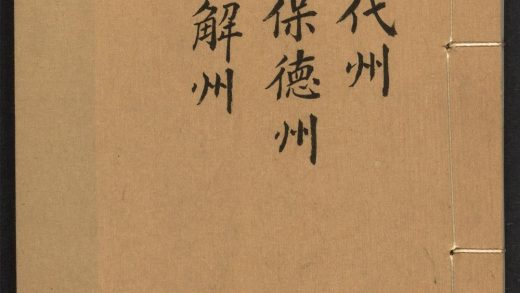 代州
保德州
解州